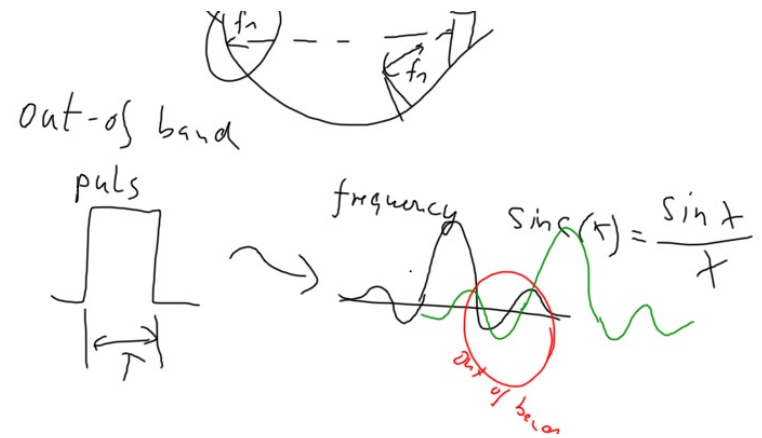 fn
fn
out-of band
puls
frequency
sinc(x) = sin x / x
T
out of